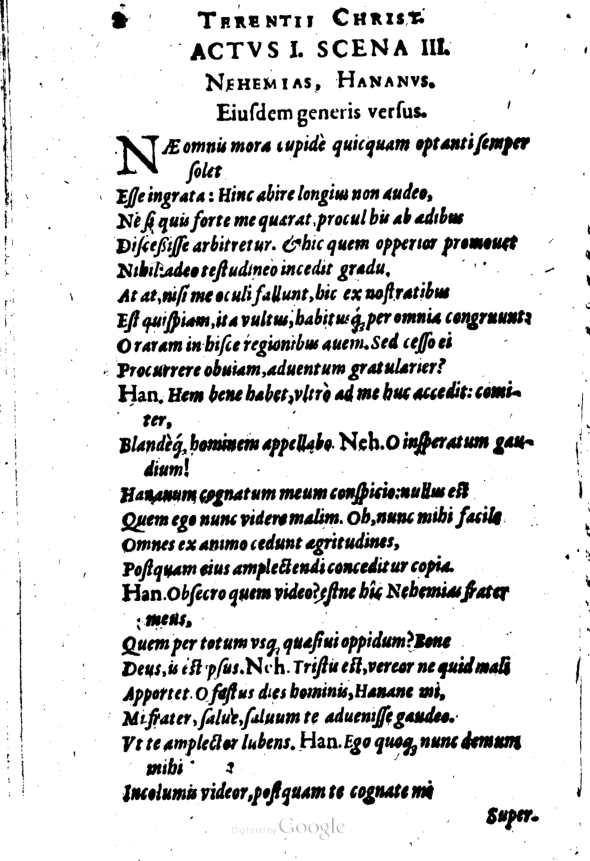 TERENTII CHRIST.
ACTVS I. SCENA III.
NEHEMIAS, HANANVS.
Eiuſdem generis verſus.
NÆ omnis mora cupidè quicquam optanti ſemper
ſolet
Eſſe ingrata: Hinc abire longius non audeo,
Ne ſi quis forte me quærat, procul his ab ædibus
Diſceßiſſe arbitretur. & hic quem opperior promouet
Nihil: adeo teſtudineo incedit gradu.
At at, niſi me oculi fallunt, hic ex noſtratibus
Eſt quiſpiam, ita vultus, habitusq́, per omnia congruunt:
O raram in hiſce regionibus auem. Sed ceſſo ei
Procurrere obuiam, aduentum gratularier?
Han. Hem bene habet, vltrò ad me huc accedit: comi-
ter,
Blandèq́, hominem appellabo. Neh. O inſperatum gau-
dium!
Hananum cognatum meum conſpicio: nullus eſt
Quem ego nunc videre malim. Oh, nunc mihi facile
Omnes ex animo cedunt ægritudines,
Poſtquam eius amplectendi conceditur copia.
Han. Obſecro quem video? eſtne hîc Nehemias frater
meus,
Quem per totum vsq, quæſiui oppidum? Bone
Deus, is eſt ipſus. Neh. Triſtis eſt, vereor ne quid mali
Apportet. O feſtus dies hominis, Hanane mi,
Mi frater, ſalue, ſaluum te adueniſſe gaudeo.
Vt te amplector lubens. Han. Ego quoq, nunc demum
mihi
Incolumis videor, poſtquam te cognate mi
Super-
Digitized by Google